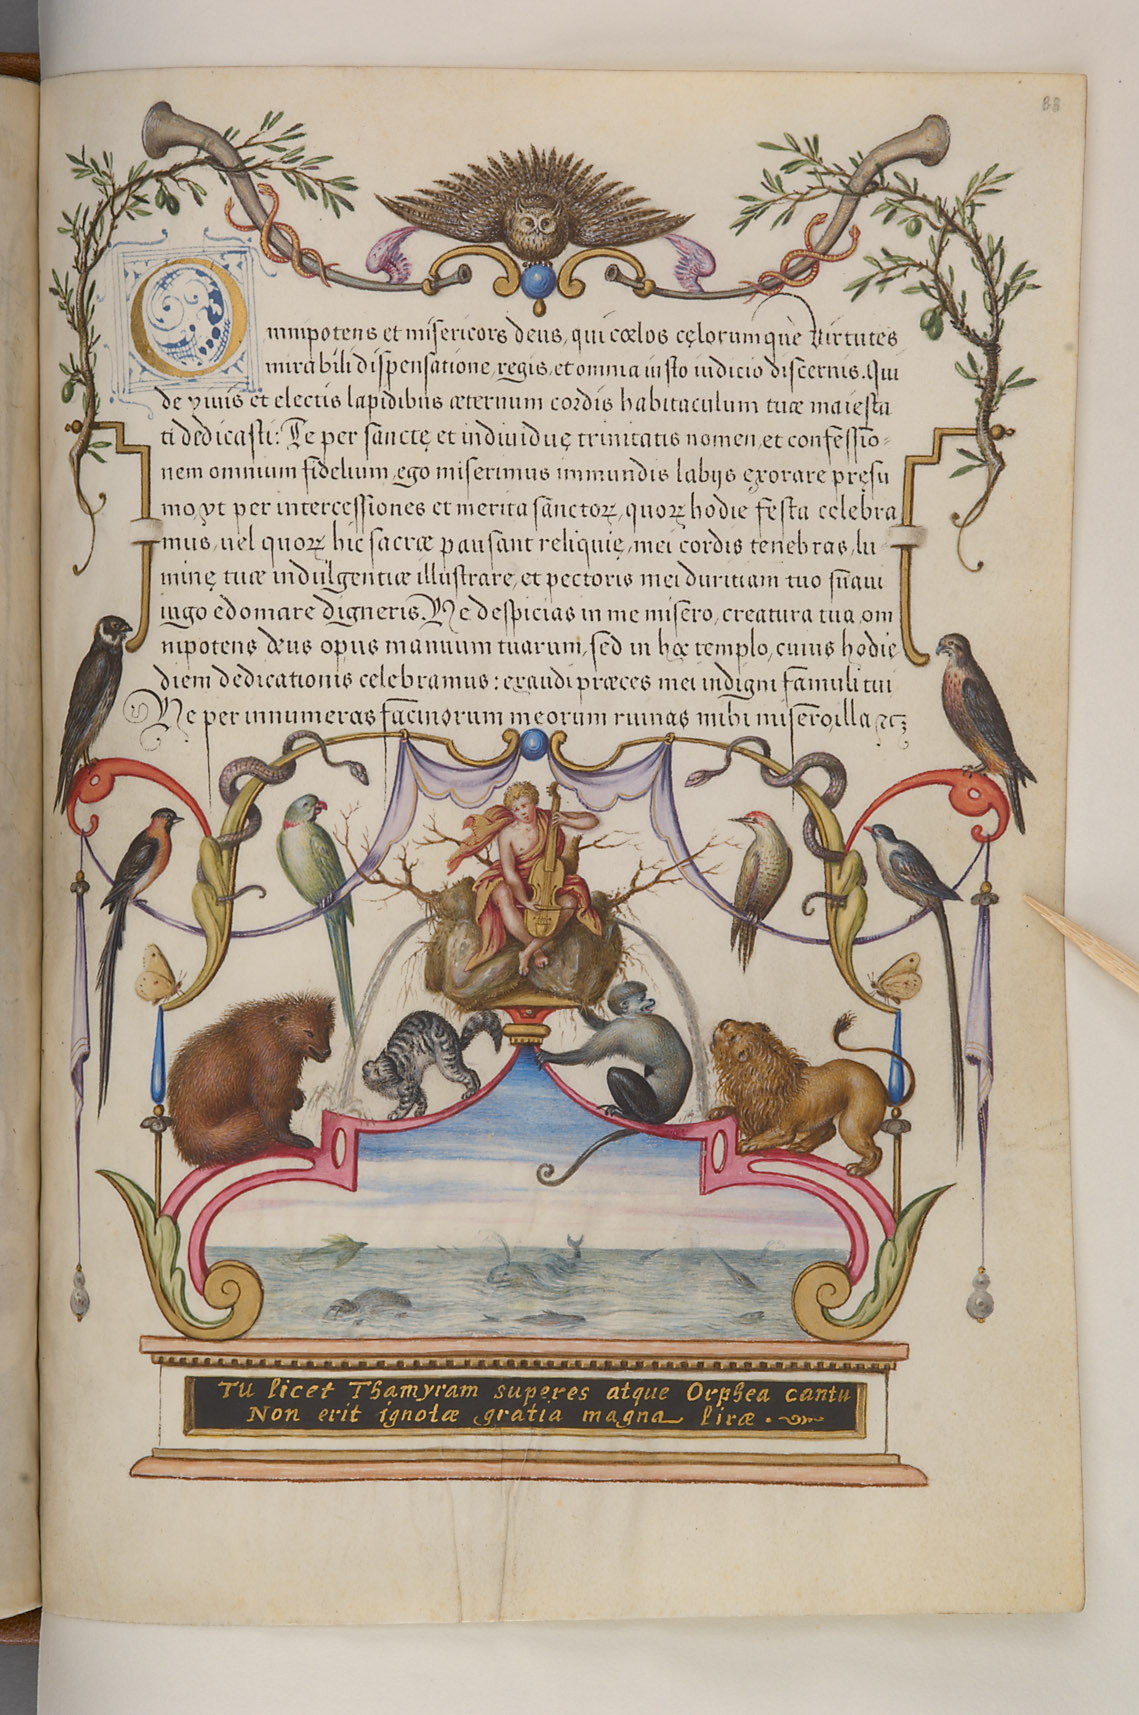 88
Omnipotens et misericors deus, qui cœlos cęlorumque Virtutes
mirabili dispensatione, regis, et omnia iusto iudicio discernis. Qui
de viuis et electis lapidibus æternum cordis habitaculum tuæ maiesta
ti dedicasti: Te per sanctę et indiuiduę trinitatis nomen, et confessio-
nem omnium fidelium, ego miserimus immundis labijs exorare presu
mo, vt per intercessiones et merita sanctorꝝ, quorꝝ hodie festa celebra
mus, uel quorꝝ hic sacræ pausant reliquię, mei cordis tenebras, lu
minę tuæ indulgentiæ illustrare, et pectoris mei duritiam tuo suaui
iugo edomare digneris. Ne despicias in me misero, creatura tua, om
nipotens deus opus manuum tuarum, sed in hoc templo, cuius hodie
diem dedicationis celebramus: exaudi præces mei indigni famuli tui
Ne per innumeras facinorum meorum ruinas mihi misero, illa ꝛcꝫ
Tu licet Thamyram superes atque Orphea cantu
Non erit ignotæ gratia magna liræ.